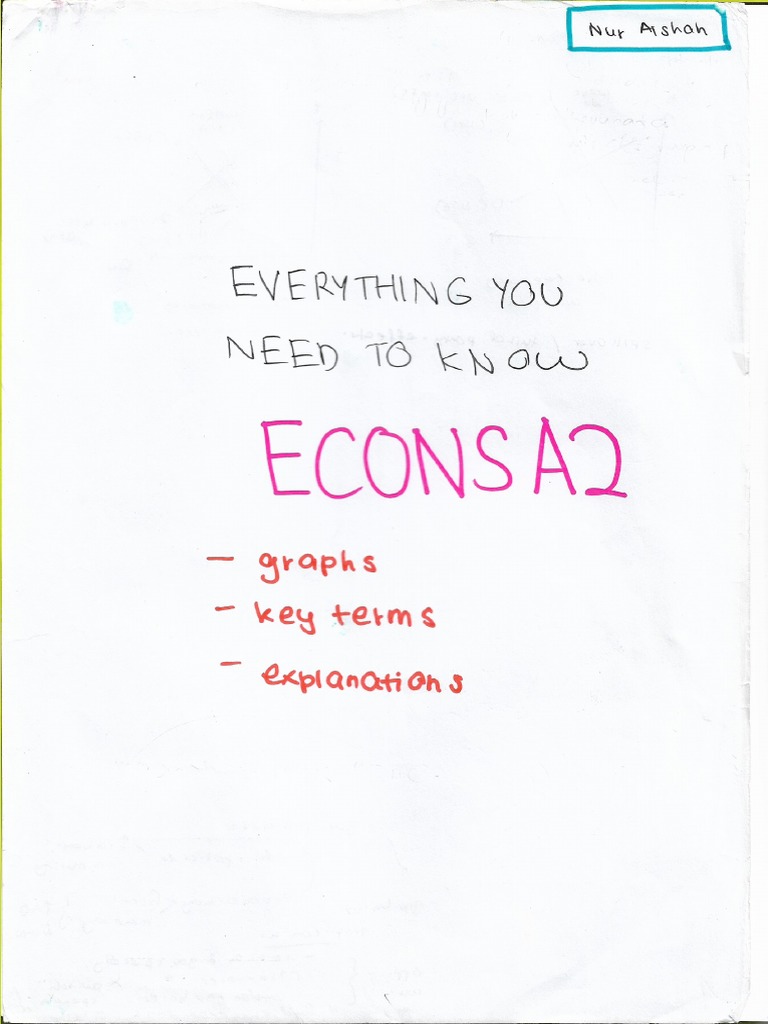 Nur Aishah
EVERYTHING YOU
NEED TO KNOW
ECONS A2
- graphs
- key terms
- explanations